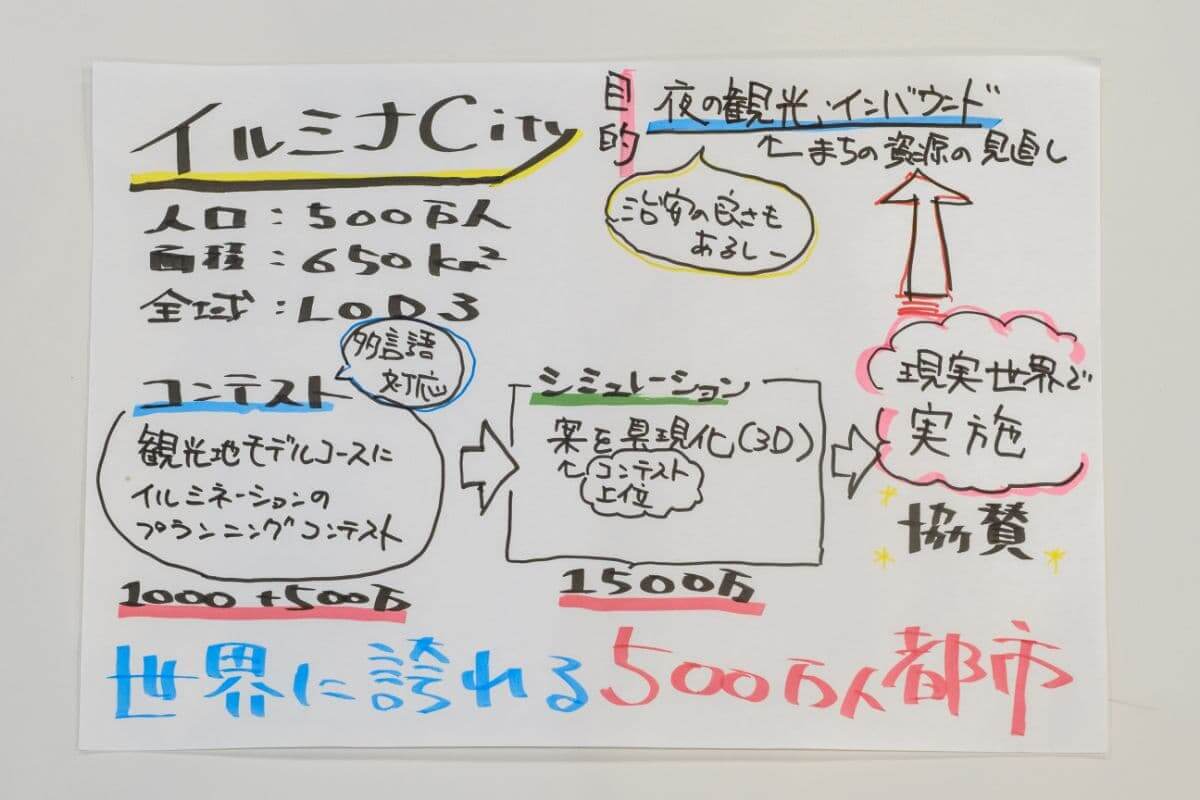 イルミナCity
人口:500万人
面積:650km²
全域:LOD3
目的
夜の観光、インバウンド
←まちの資源の見直し
治安の良さも
あるしー
多言語
対応
コンテスト
観光地モデルコースに
イルミネーションの
プランニングコンテスト
1000+500万
シミュレーション
案を具現化(3D)
←コンテスト
上位
1500万
現実世界で
実施
協賛
世界に誇れる500万人都市